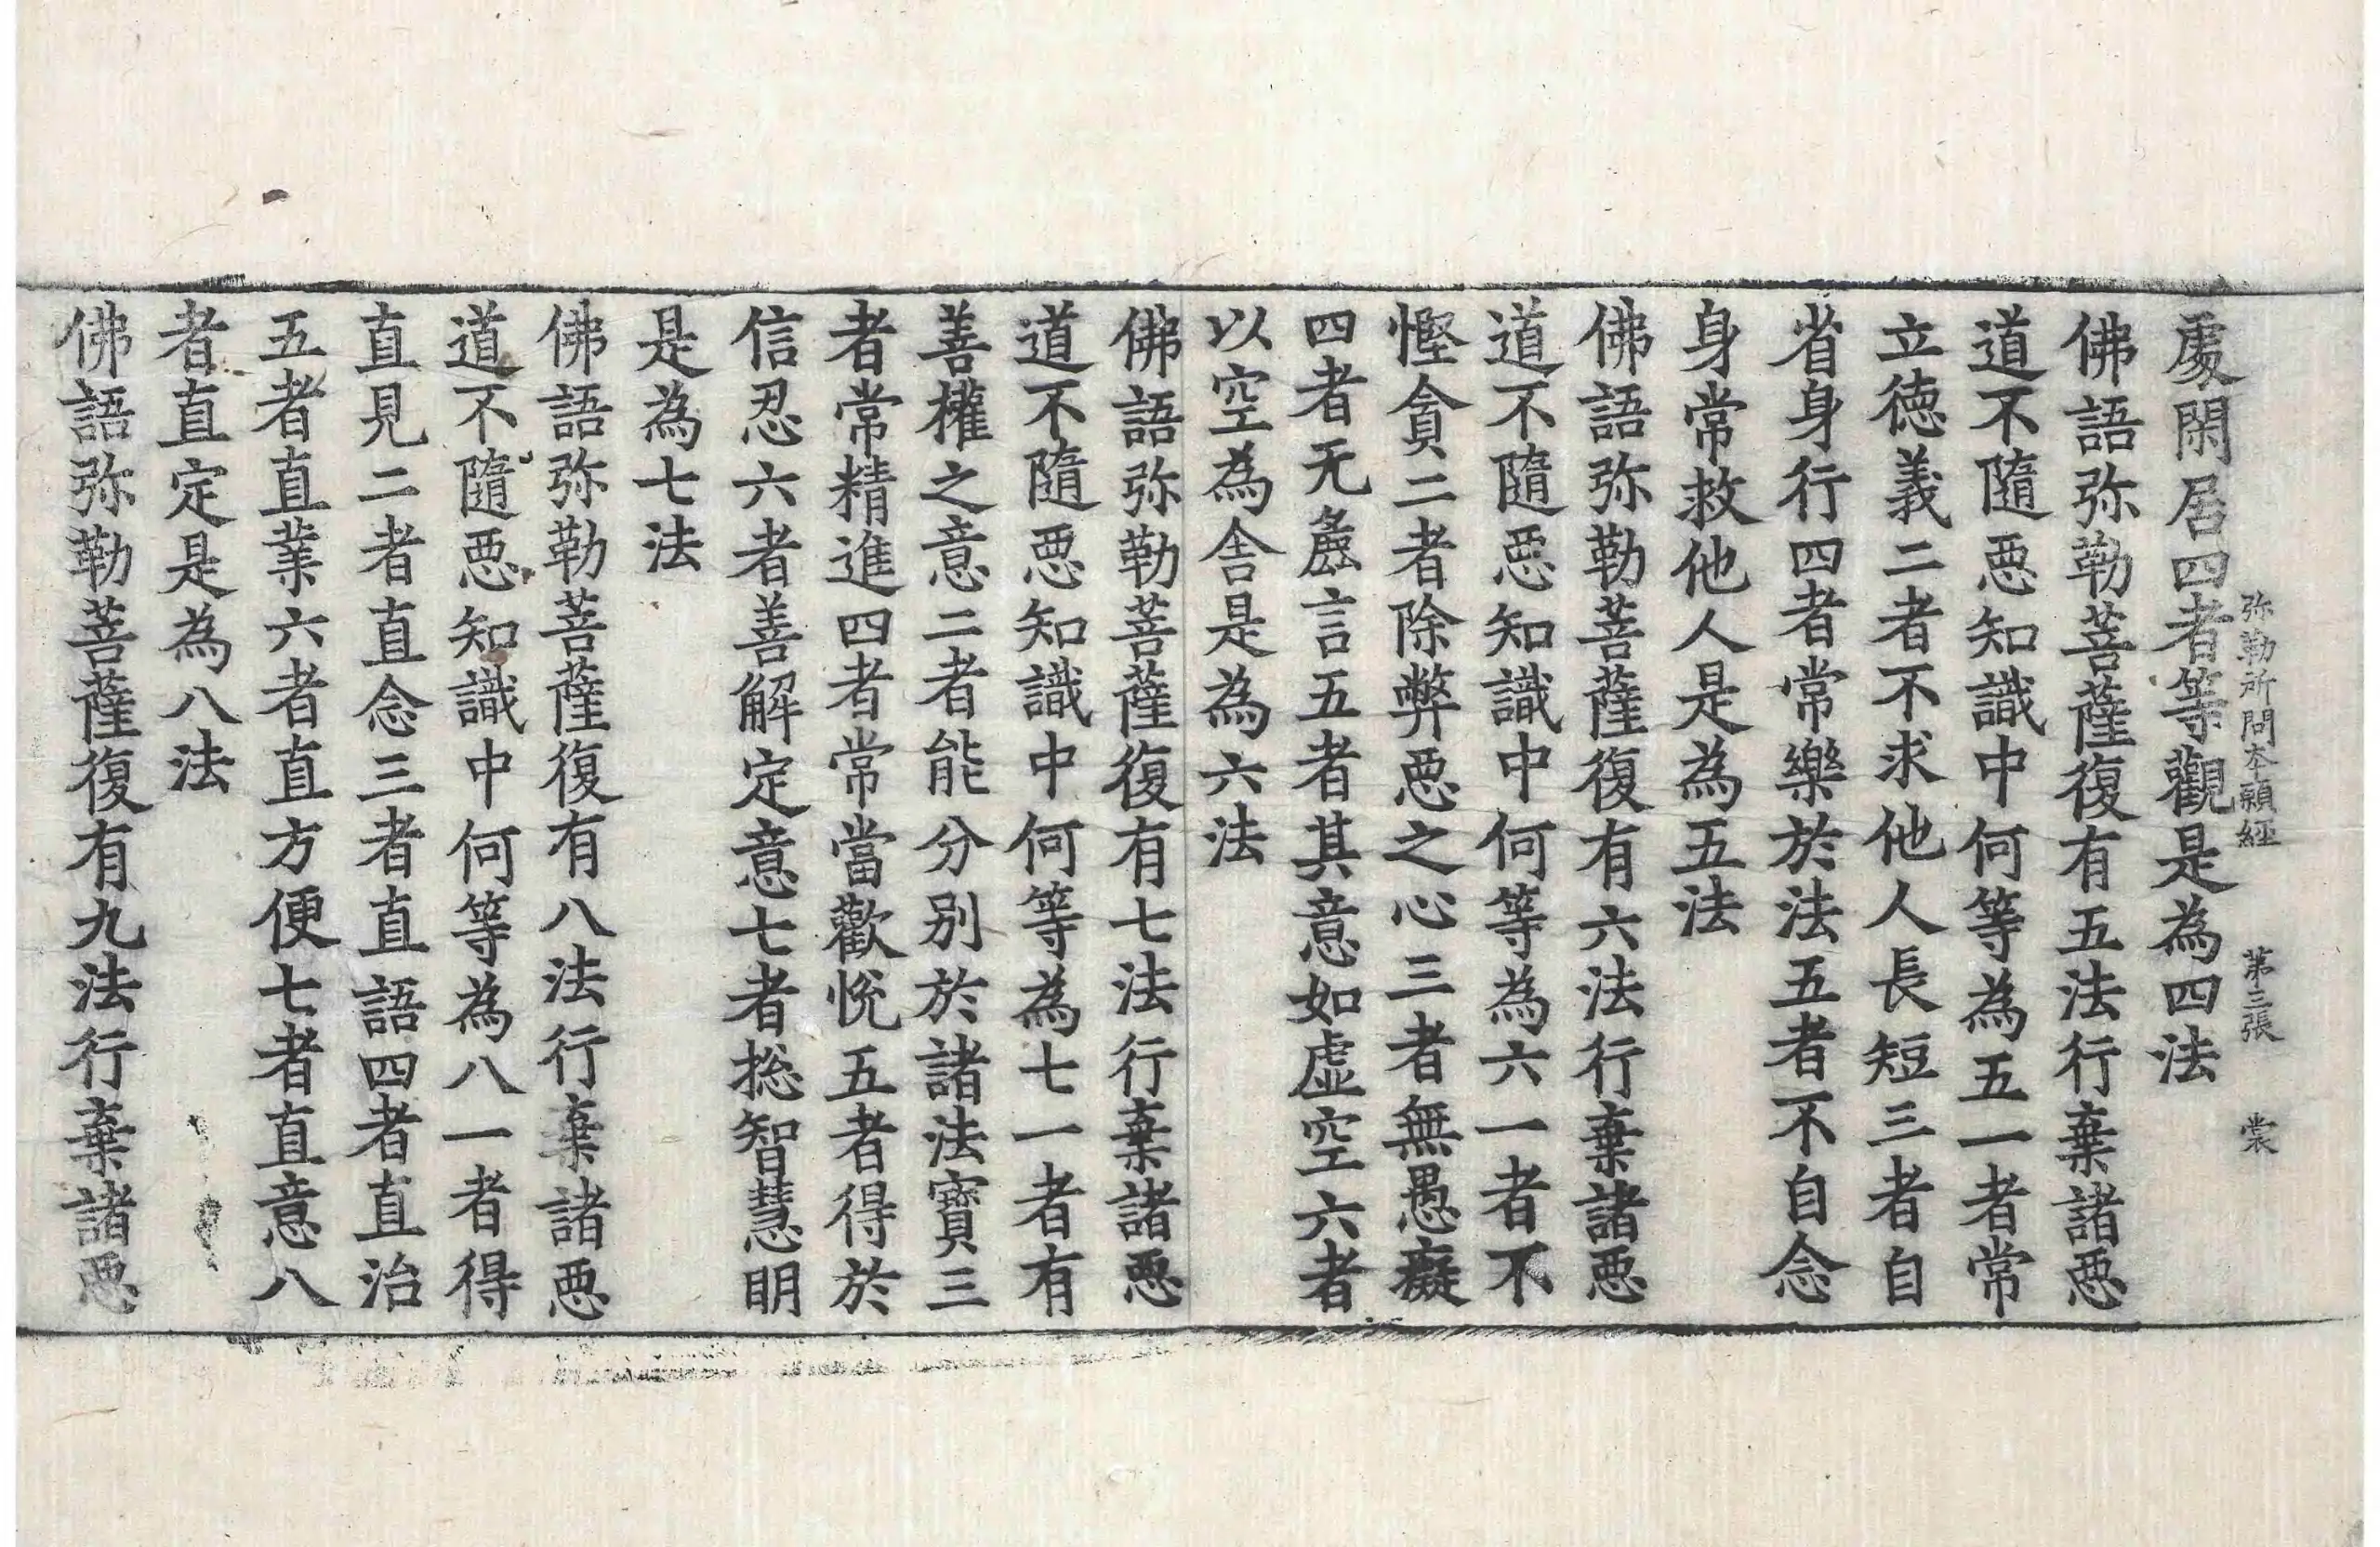 弥勒所問本願經 第三張 裳
處閑居四者等觀是為四法
佛語弥勒菩薩復有五法行棄諸惡
道不隨惡知識中何等為五一者常
立德義二者不求他人長短三者自
省身行四者常樂於法五者不自念
身常救他人是為五法
佛語弥勒菩薩復有六法行棄諸惡
道不隨惡知識中何等為六一者不
慳貪二者除弊惡之心三者無愚癡
四者无麁言五者其意如虛空六者
以空為舍是為六法
佛語弥勒菩薩復有七法行棄諸惡
道不隨惡知識中何等為七一者有
善權之意二者能分別於諸法寶三
者常精進四者常當歡悅五者得於
信忍六者善解定意七者揔智慧明
是為七法
佛語弥勒菩薩復有八法行棄諸惡
道不隨惡知識中何等為八一者得
直見二者直念三者直語四者直治
五者直業六者直方便七者直意八
者直定是為八法
佛語弥勒菩薩復有九法行棄諸惡